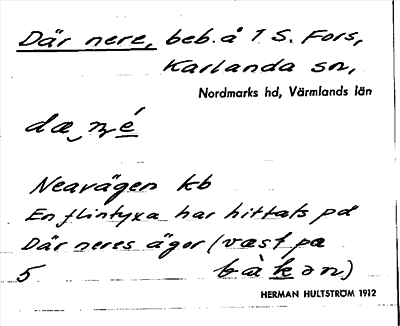 Där nere, beb. å 1 S. Fors,
Karlanda sn,
Nordmarks hd, Värmlands län
dæ, né
Nearvägen kb
En flintyxa har hittats på
Där neres ägor (væst pa
5 bàkən)
HERMAN HULTSTRÖM 1912